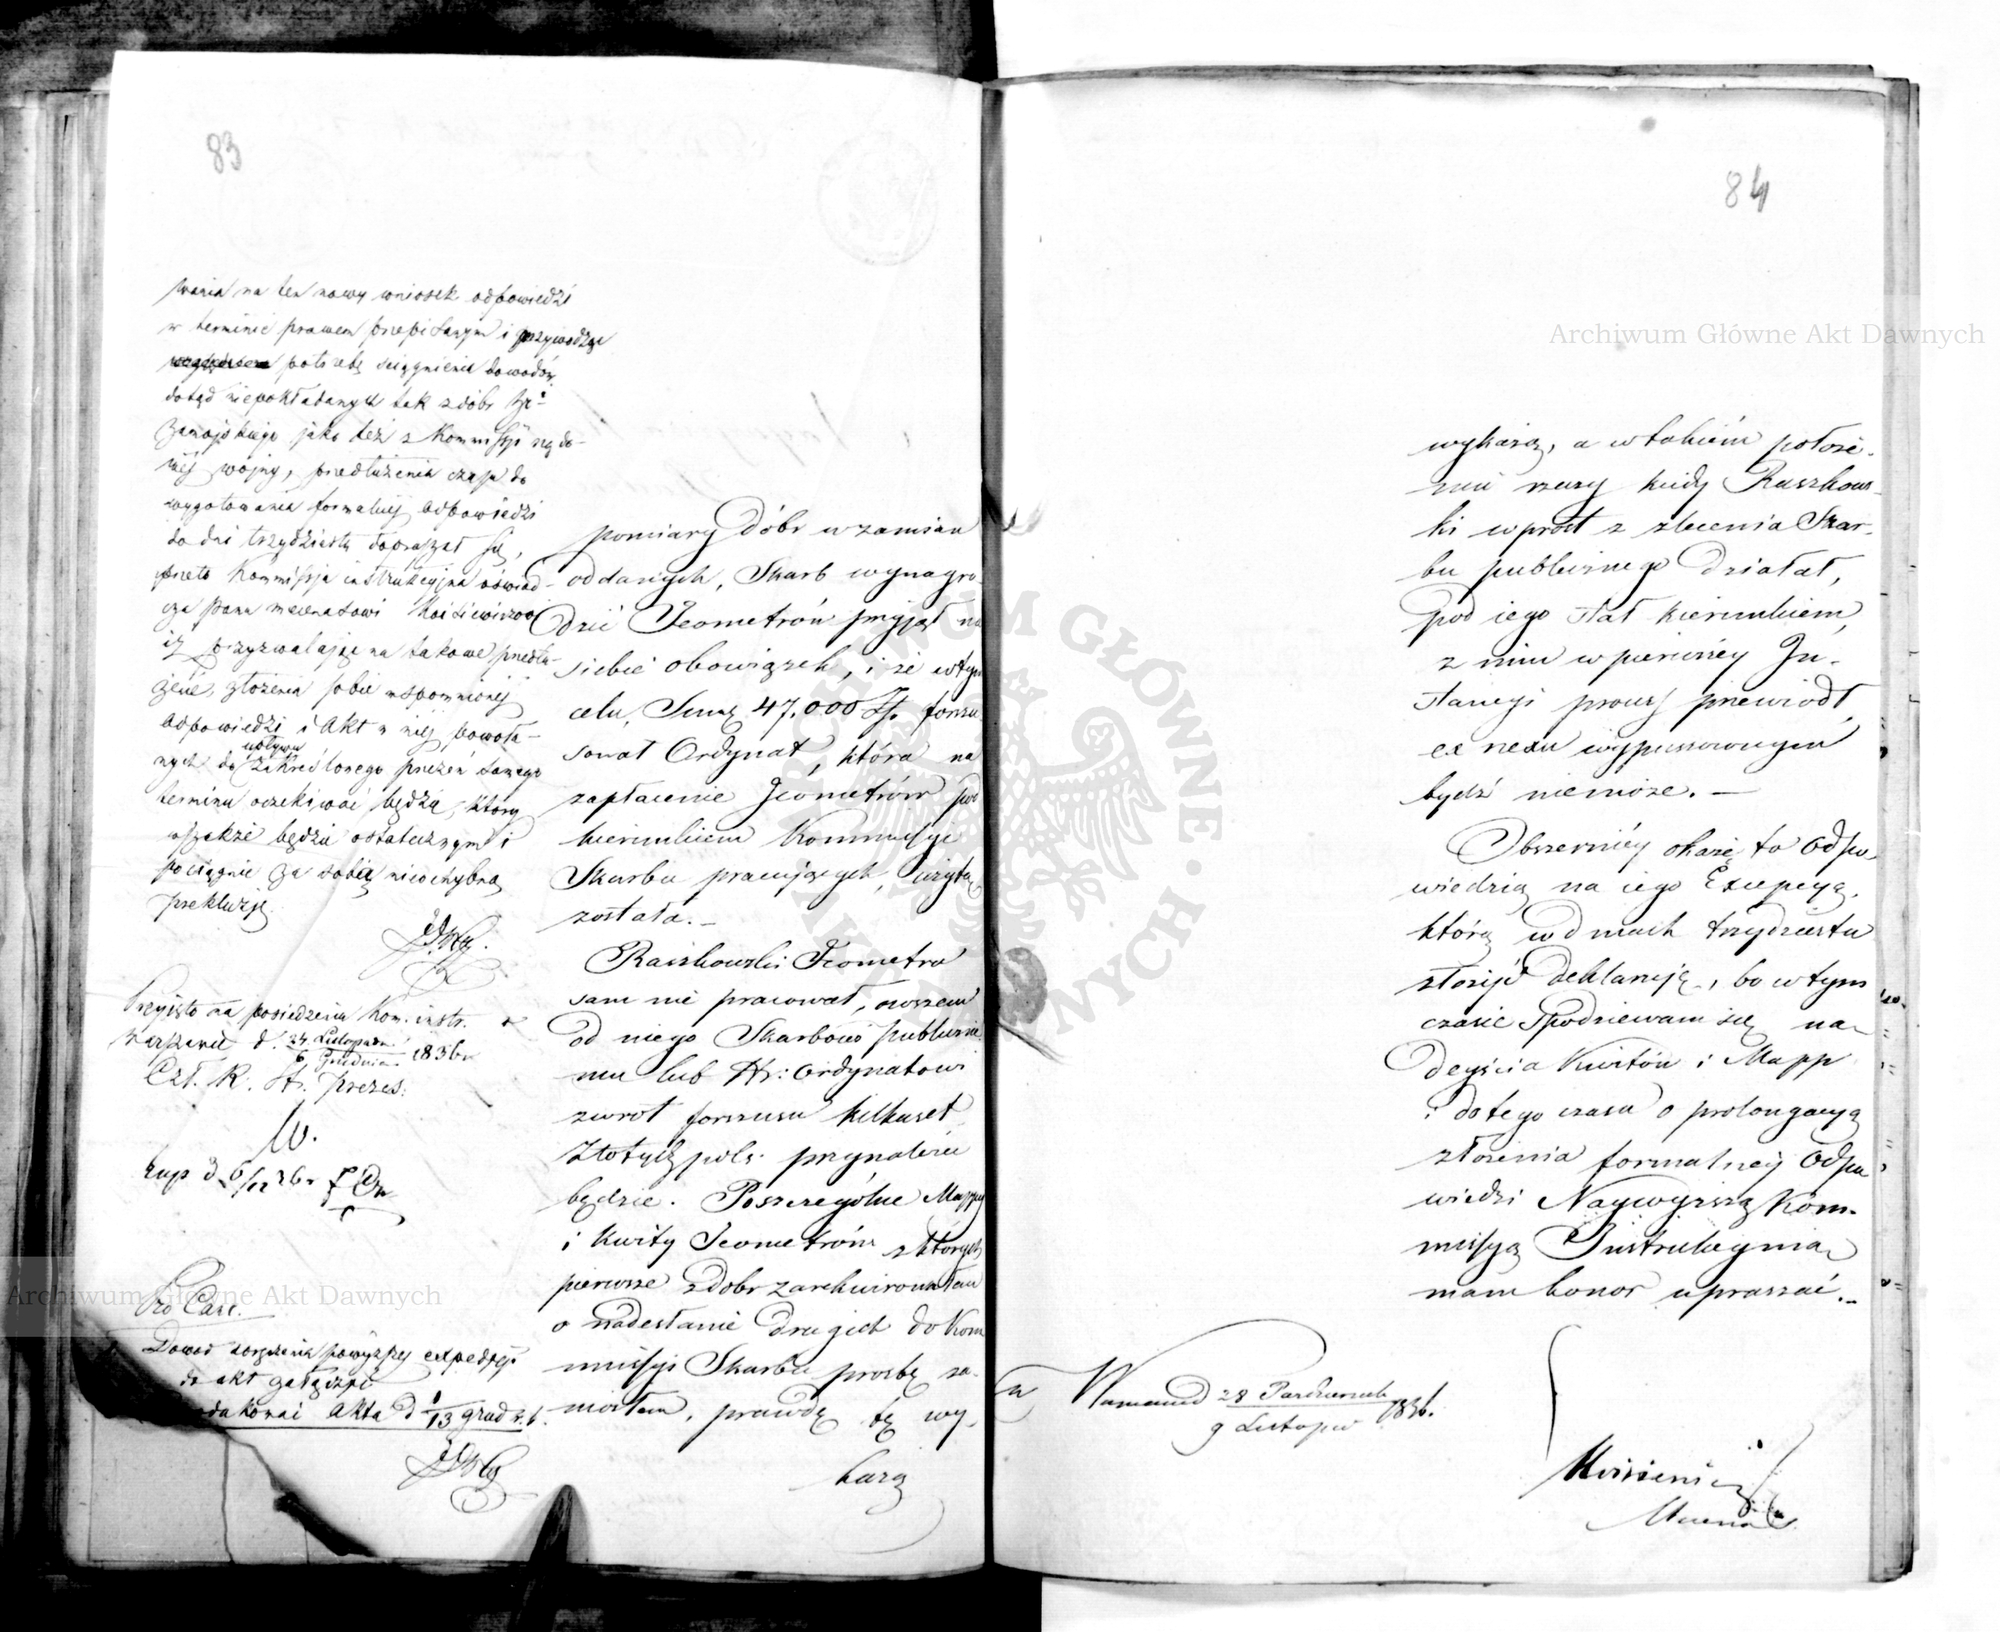 83
wania na ten nowy wniosek odpowiedzi
w terminie prawem przepisanym i przywodząc
potrzebę ściągnienia dowodów
dotąd niepokładanych tak z dóbr
Zamojskiego jako też z Kommissyi rządo-
wéj wojny, przedłużenia czasu do
wygotowania formalnéj odpowiedzi
do dni trzydziestu dopraszał się,
przeto Kommissja instrukcyjna oświad-
cza Panu mecenatowi
iż przyzwalając na takowe przedłu-
żenie, złożenia sobie wspomnionéj
odpowiedzi i Akt w niéj powoła-
nych do upływu zakreślonego przezeń samego
terminu oczekiwać będzie, który
wszakże będzie ostatecznym i
pociągnie za sobą niechybną
prekluzję.
Przyjęto na posiedzeniu Kom. instr.
w Warszawie d. 24 Listopada / 6 Grudnia 1836 r.
Czł. R. St. Prezes.
W.
Exp d 6/12 36 r.
Pro Care.
Dowód doręczenia powyższej expedycji
do akt gałęzi
Akta d 1/13 grud r. b.
pomiary dóbr w zamian
oddanych, Skarb wynagro-
dzić Jeometrów przyjął na
siebie obowiązek, i że w tym
celu, Sumę 47.000 Zł. forszu-
sował Ordynat, która na
zapłacenie Jeometrów pod
kierunkiem Kommissyi
Skarbu pracujących, użytą
została.–
Raszkowski Jeometra
sam nie pracował, owszem
od niego Skarbowi publiczne-
mu lub Hr: Ordynatowi
zwrot forszusu kilkuset
Złotych pols: przynależeć
będzie. Poszczególne Mappy
i kwity Jeometrów z których
pierwsze z dobr zarekwirowałem
o nadesłanie drugich do Kom
missyi Skarbu prośbę za-
niosłem, prawdę tę wy-
każą
84
wykażą, a w takiém położe-
niu rzeczy kiedy Raszkows-
ki wprost z zlecenia Skar-
bu publicznego działał,
pod jego stał kierunkiem,
z nim w pierwszéy In-
stancyi proces przewiódł,
ex nexu wypuszczonym
bydź niemoże. –
Obszerniéy okażę to odpo-
wiedzią na jego Excepcyą,
którą w dniach trzydziestu
złożyć deklaruję, bo w tym
czasie spodziewam się na-
deyścia Kwitów i Mapp
i do tego czasu o prolongacyą
złożenia formalnéy Odpo-
wiedzi Naywyższą Kom-
missyą Instrukcyiną
mam honor upraszać. –
w Warszawie d 28 Października / 9 Listopad 1836.
Mecenas